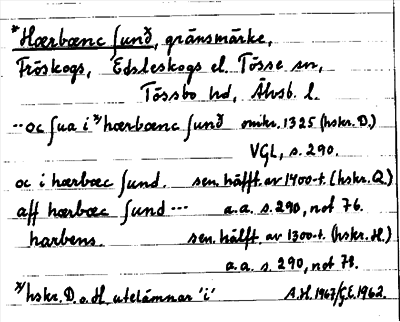 *Hærbænc ſunð, gränsmärke,
Fröskogs, Edsleskogs el. Tösse sn,
Tössbo hd, Älvsb. l.
--oc ſua i *⁾hærbænc ſunð omkr. 1325 (hskr. D.)
VGL, s. 290.
oc i hærbæc ſund. sen. hälft. av 1400-t. (hskr. Q)
aff hærbæc ſund --- a.a. s. 290, not 76.
harbens. sen. hälft. av 1300-t. (hskr. H.)
a.a. s. 290, not 78.
*⁾hskr. D. o. H. utelämnar 'i' A.H. 1947/G.E. 1962.